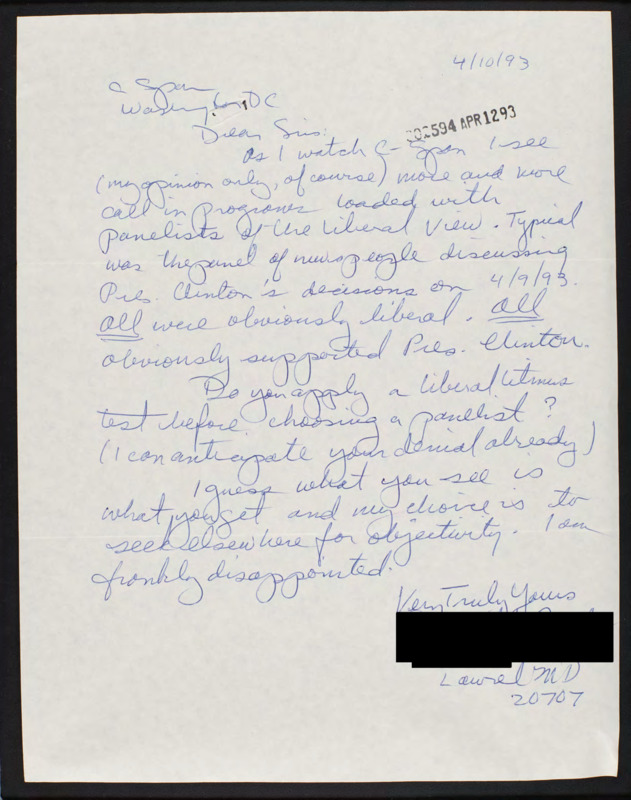 4/10/93
C Span
Washington DC
002594 APR1293
Dear Sirs:
As I watch C-Span I see
(my opinion only, of course) more and more
call in programs loaded with
panelists of the liberal view. Typical
was the panel of newspeople discussing
Pres. Clinton's decisions on 4/9/93.
All were obviously liberal. All
obviously supported Pres. Clinton.
Do you apply a liberal litmus
test before choosing a panelist?
(I can anticipate your denial already)
I guess what you see is
what you get and my choice is to
seek elsewhere for objectivity. I am
frankly disappointed.
Very Truly Yours
Laurel MD
20707